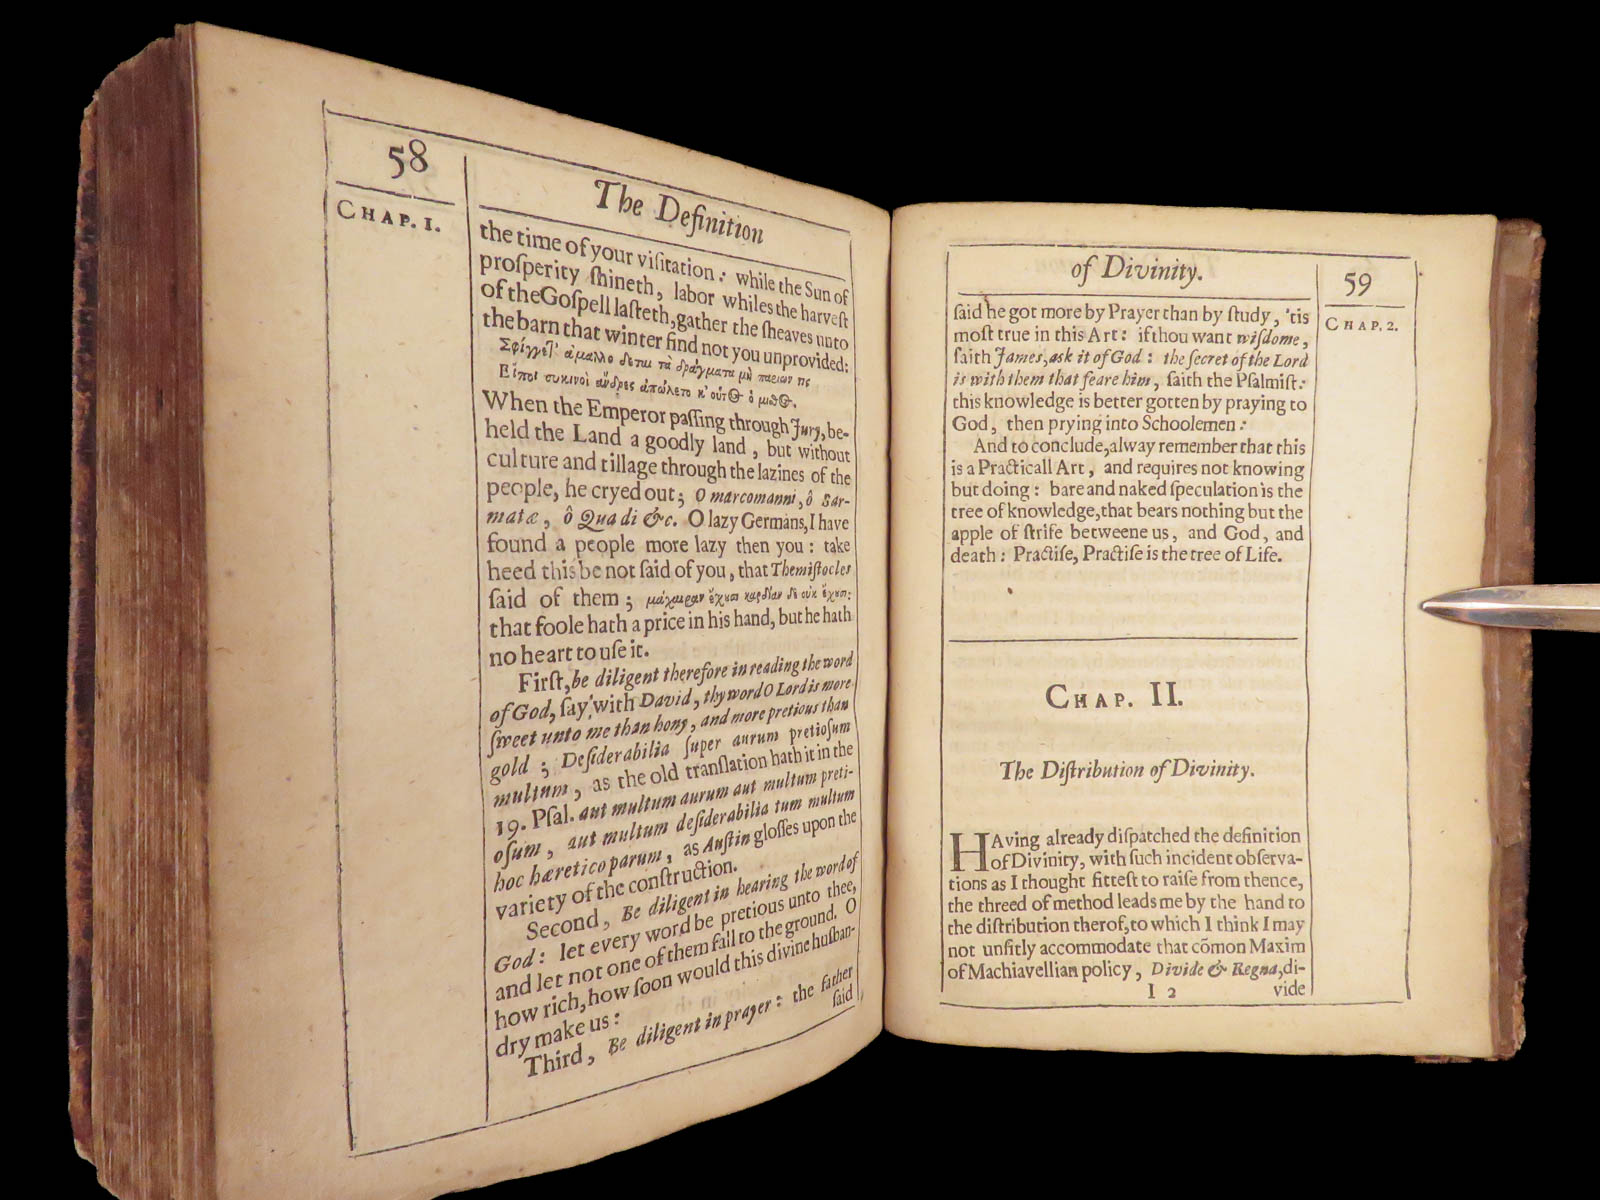 58
The Definition
CHAP. I.
the time of your viſitation: while the Sun of
proſperity ſhineth, labor whiles the harveſt
of the Goſpell laſteth, gather the ſheaves unto
the barn that winter find not you unprovided:
When the Emperor paſſing through Jury, be-
held the Land a goodly land, but without
culture and tillage through the lazines of the
people, he cryed out; O marcomanni, ô Sar-
matæ, ô Quadi &c. O lazy Germans, I have
found a people more lazy then you: take
heed this be not ſaid of you, that Themiſtocles
ſaid of them; μάχαιραν ἔχουσι καρδίαν δὲ οὐκ ἔχουσι:
that foole hath a price in his hand, but he hath
no heart to uſe it.
Firſt, be diligent therefore in reading the word
of God, ſay with David, thy word O Lord is more
ſweet unto me than hony, and more pretious than
gold; Deſiderabilia ſuper aurum pretioſum
multum, as the old tranſlation hath it in the
19. Pſal. aut multum aurum aut multum preti-
oſum, aut multum deſiderabilia tum multum
hoc hæretico parum, as Auſtin gloſſes upon the
variety of the conſtruction.
Second, Be diligent in hearing the word of
God: let every word be pretious unto thee,
and let not one of them fall to the ground. O
how rich, how ſoon would this divine husban-
dry make us:
Third, Be diligent in prayer: the father
ſaid
of Divinity.
59
CHAP. 2.
ſaid he got more by Prayer than by ſtudy, 'tis
moſt true in this Art: if thou want wiſdome,
ſaith James, ask it of God: the ſecret of the Lord
is with them that feare him, ſaith the Pſalmiſt:
this knowledge is better gotten by praying to
God, then prying into Schoolemen:
And to conclude, alway remember that this
is a Practicall Art, and requires not knowing
but doing: bare and naked ſpeculation is the
tree of knowledge, that bears nothing but the
apple of ſtrife betweene us, and God, and
death: Practiſe, Practiſe is the tree of Life.
CHAP. II.
The Diſtribution of Divinity.
HAving already diſpatched the definition
of Divinity, with ſuch incident obſerva-
tions as I thought fitteſt to raiſe from thence,
the threed of method leads me by the hand to
the diſtribution therof, to which I think I may
not unfitly accommodate that cõmon Maxim
of Machiavellian policy, Divide & Regna, di-
I 2
vide